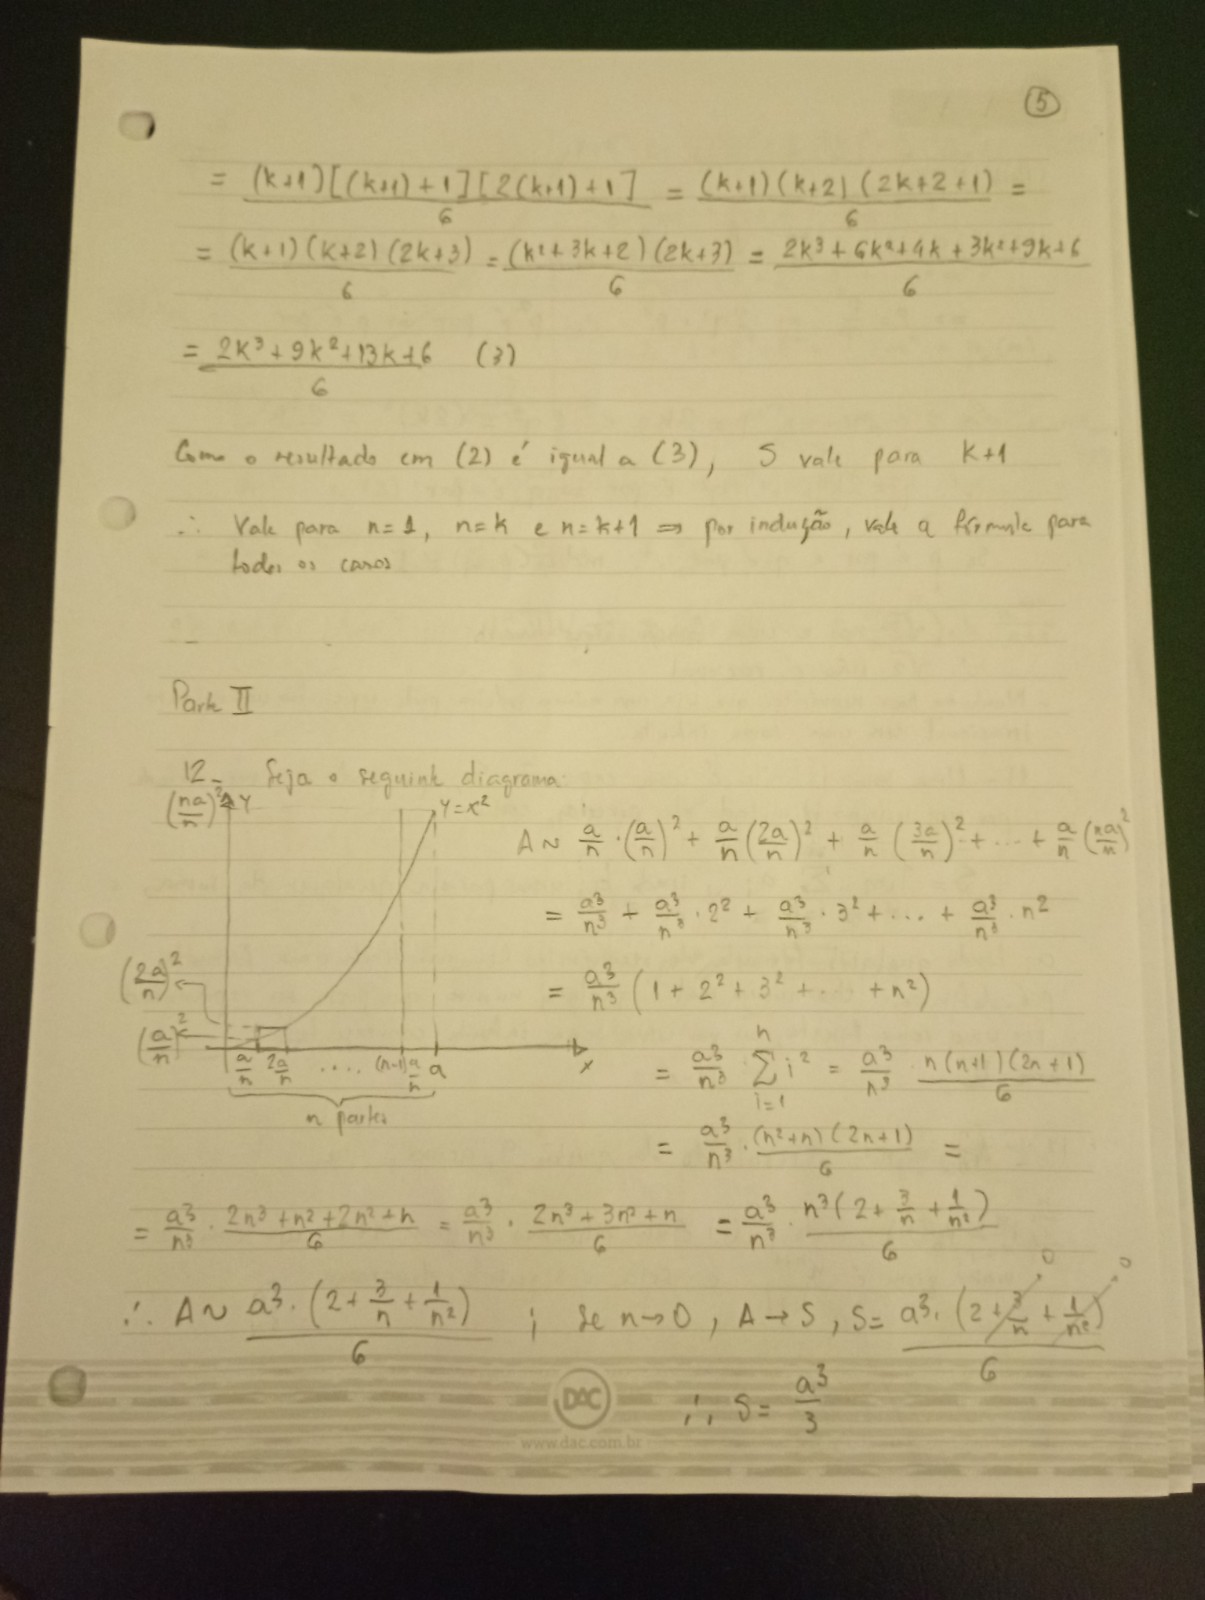 5
= (k+1)[(k+1)+1][2(k+1)+1]/6 = (k+1)(k+2)(2k+2+1)/6 =
= (k+1)(k+2)(2k+3)/6 = (k²+3k+2)(2k+3)/6 = 2k³+6k²+4k+3k²+9k+6/6
= 2k³+9k²+13k+6/6 (3)
Como o resultado em (2) é igual a (3), S vale para k+1
∴ Vale para n=1, n=k e n=k+1 ⇒ por indução, vale a fórmula para
todos os casos
Parte II
12- Seja o seguinte diagrama:
(na/n)² y y=x²
A ~ a/n · (a/n)² + a/n (2a/n)² + a/n (3a/n)² + ... + a/n (na/n)²
= a³/n³ + a³/n³ · 2² + a³/n³ · 3² + ... + a³/n³ · n²
(2a/n)²
= a³/n³ (1 + 2² + 3² + ... + n²)
(a/n)²
a/n 2a/n .... (n-1)a/n a x
n partes
= a³/n³ · n∑i=1 i² = a³/n³ · n(n+1)(2n+1)/6
= a³/n³ · (n²+n)(2n+1)/6 =
= a³/n³ · 2n³+n²+2n²+n/6 = a³/n³ · 2n³+3n²+n/6 = a³/n³ · n³(2+3/n+1/n²)/6
∴ A ~ a³·(2+3/n+1/n²)/6 ; Se n→0, A→S, S= a³·(2+3/n+1/n²)/6 0 0
∴ S= a³/3
DAC
www.dac.com.br